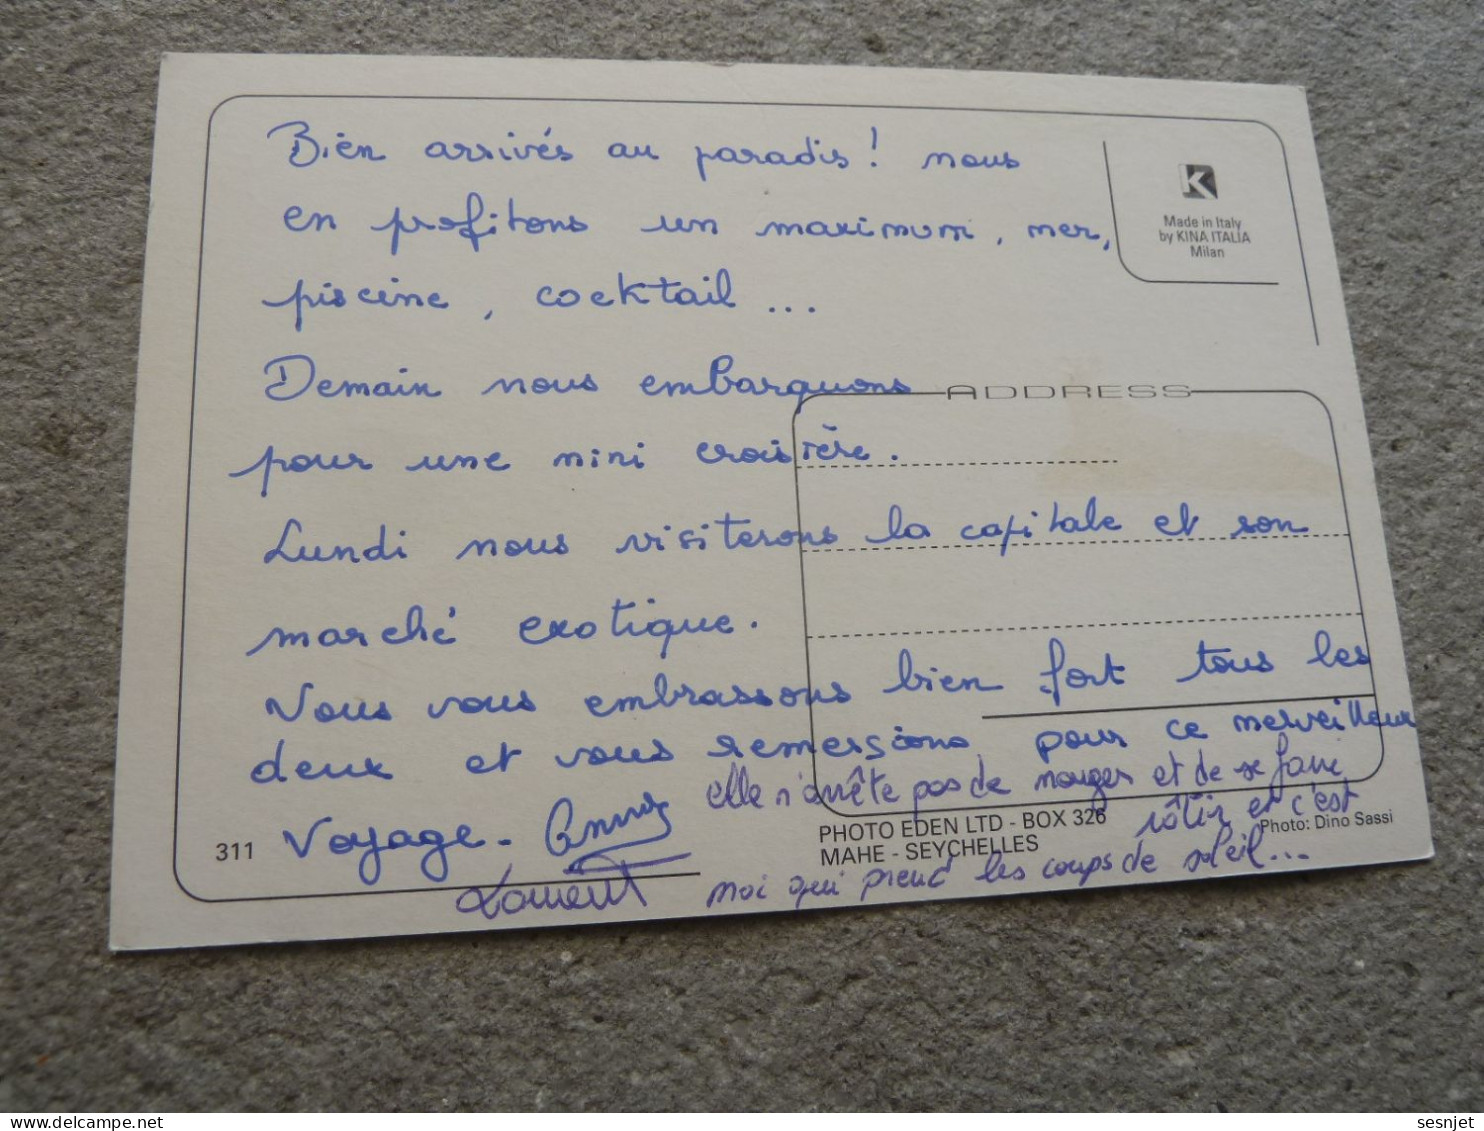 Bien arrivés au paradis ! nous
en profitons un maximum, mer,
piscine, cocktail ...
Demain nous embarquons
pour une mini croisière.
Lundi nous visiterons la capitale et son
marché exotique.
Nous vous embrassons bien fort tous les
deux et vous remercions pour ce merveilleux
Voyage -
Laurent
elle n'arrête pas de nager et de se faire
rôtir et c'est
moi qui prend les coups de soleil...
K
Made in Italy
by KINA ITALIA
Milan
ADDRESS
311
PHOTO EDEN LTD - BOX 326
MAHE - SEYCHELLES
Photo: Dino Sassi
sesnjet